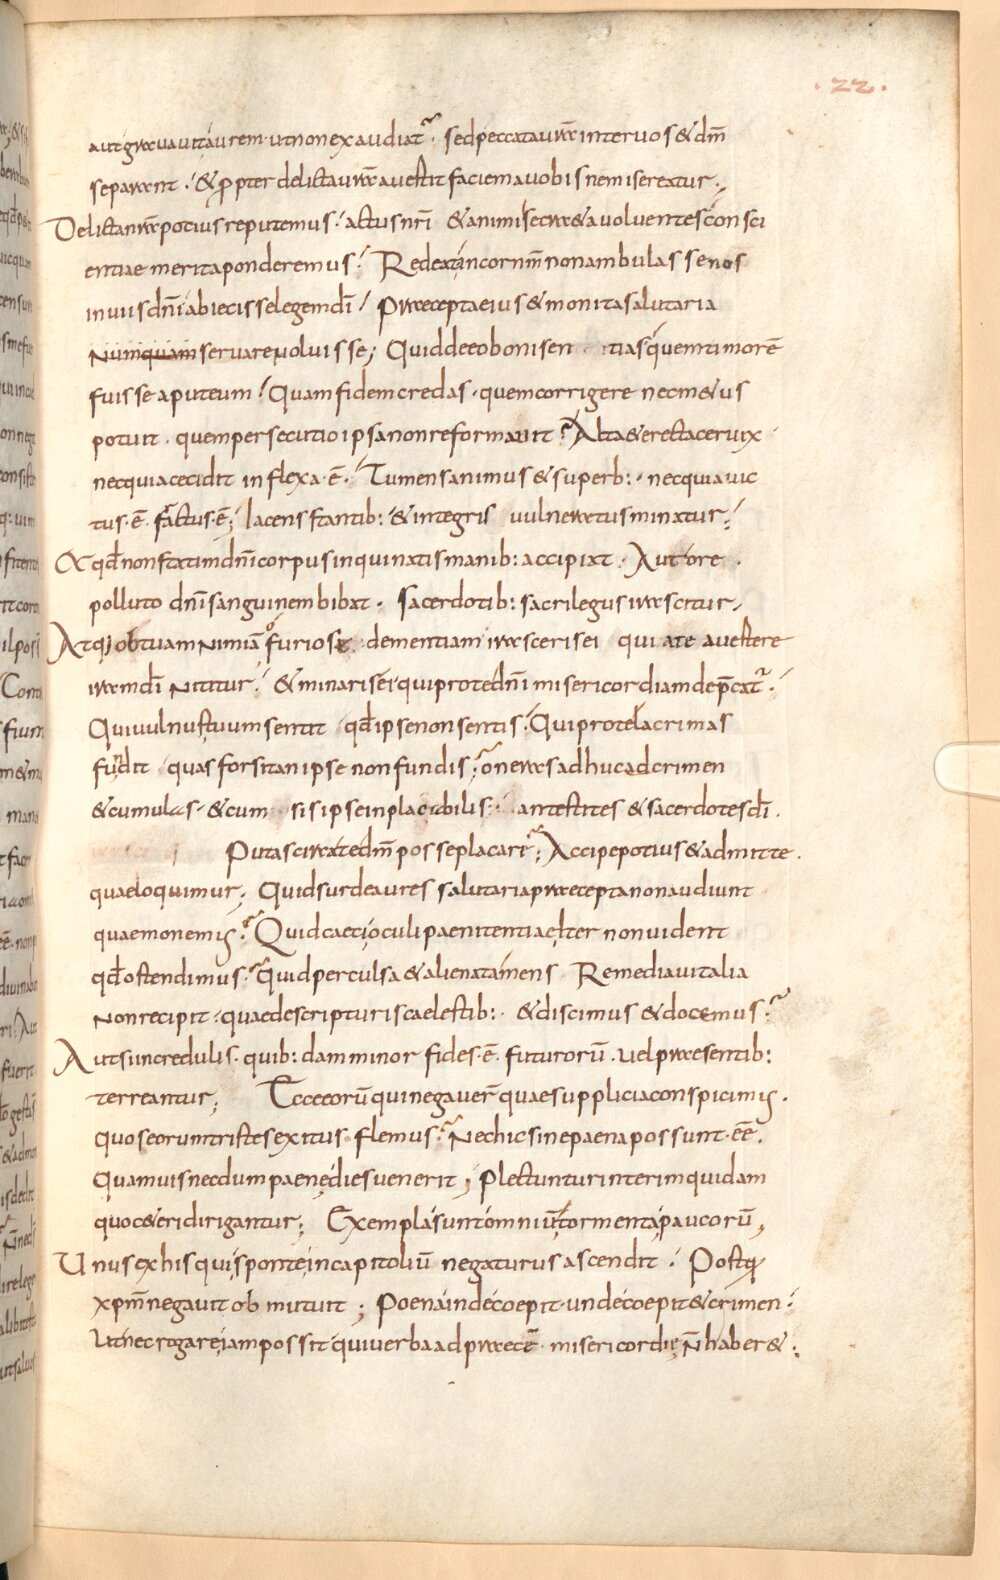 ·22·
aut gravavit aurem· ut non exaudiat̃· sed peccata vr̃a inter vos & dm̃
separant·/ & ꝓpter delicta vr̃a avestit faciem a vobis ne misereatur·,
Delicta nr̃a potius reputemus·/ actus nr̃i & animi secreta evolventes consci
entiae merita ponderemus·/ Redeat in cor nr̃m non ambulasse nos
in viis dñi abiecisse legem dī / Praecepta eius & monita salutaria
Numquam servare voluisse; Quid de eo boni sen tias quem timorē
fuisse aput eum·/ Quam fidem credas· quem corrigere nec m&us
potuit· quem persecutio ipsa non reformavit·/ Alta & erecta cervix
nec quia cecidit inflexa·ē·/ Tumens animus & superb:· nec quia vic
tus·ē· fractus·ē·; Iacens stantib: & integris vulneratus minatur·/
Et qđ non statim dñi corpus inquinatis manib: accipiat· Aut ore·
polluto dñi sanguinem bibat· sacerdotib: sacrilegus irascitur,
Atq; ob tuam nimiā o furiose· dementiam irasceris ei qui a te avertere
iram dī nititur·/ & minaris ei· qui pro te dñi misericordiam dep̄cat̃·/
Qui vulnus tuum sentit qđ ipse non sentis·/ Qui pro te lacrimas
fundit quas forsitan ipse non fundis·/ oneras adhuc adcrimen
& cumulas· & cum sis ipse inplacabilis· antestites & sacerdotes dī·
Putas circa te dm̃ posse placari·; Accipe potius & admitte·
quae loquimur; Quid surdae aures salutaria praecepta non audiunt
quae monemus·/ Quid caeci oculi paenitentiae iter non vident
qđ ostendimus·/ quid perculsa & alienata mens Remedia vitalia
Non recipit· quae de scripturis caelestib:· & discimus & docemus·/
Aut si incredulis· quib:dam minor fides·ē· futurorū· vel praesentib:
terreantur; Ecce eorū qui negaver̃ quae supplicia conspicimus·
quos eorum tristes exitus flemus·/ Nec hic sine paena possunt·ēē·
Quamuis necdum paenę dies venerit; plectuntur interim quidam
quo c&eri dirigantur; Exempla sunt omniū tormenta paucorū,
Unus ex his qui sponte in capitoliū negaturus ascendit·/ Postq̄
xp̄m negavit obmutuit; Poena inde coepit· unde coepit & crimen·/
Ut nec rogare iam possit qui verba ad praecē misericordię ñ haber&·: